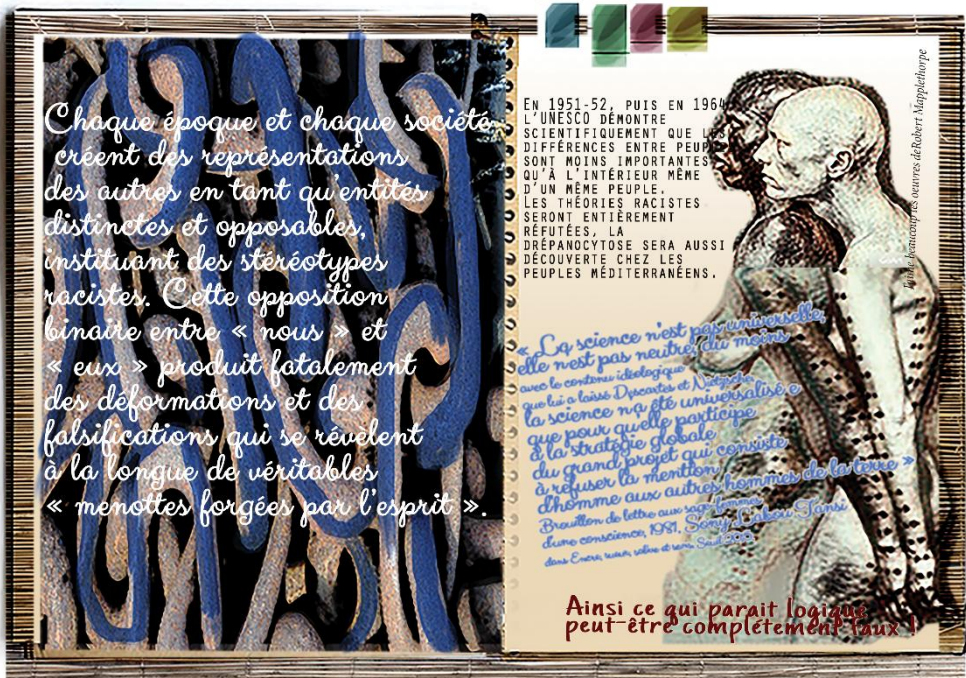 Chaque époque et chaque société
créent des représentations
des autres en tant qu'entités
distinctes et opposables,
instituant des stéréotypes
racistes. Cette opposition
binaire entre « nous » et
« eux » produit fatalement
des déformations et des
falsifications qui se révèlent
à la longue de véritables
« menottes forgées par l'esprit ».
En 1951-52, puis en 1964
l'UNESCO démontre
scientifiquement que les
différences entre peuple
sont moins importantes
qu'à l'intérieur même
d'un même peuple.
Les théories racistes
seront entièrement
réfutées, la
drépanocytose sera aussi
découverte chez les
peuples méditerranéens.
beaucoup les oeuvres de Robert Mapplethorpe
« La science n'est pas universelle,
elle n'est pas neutre, du moins
avec le contenu idéologique
que lui a laissé Descartes et Nietzsche,
la science n'a été universalisé e
que pour qu'elle participe
à la stratégie globale
du grand projet qui consiste
à refuser la mention
d'homme aux autres hommes de la terre »
Brouillon de lettre aux sage-femmes
d'une conscience, 1981, Sony Labou Tansi
dans Encre, sueur, salive et sang, Seuil
Ainsi ce qui parait logique
peut-être complétement faux !